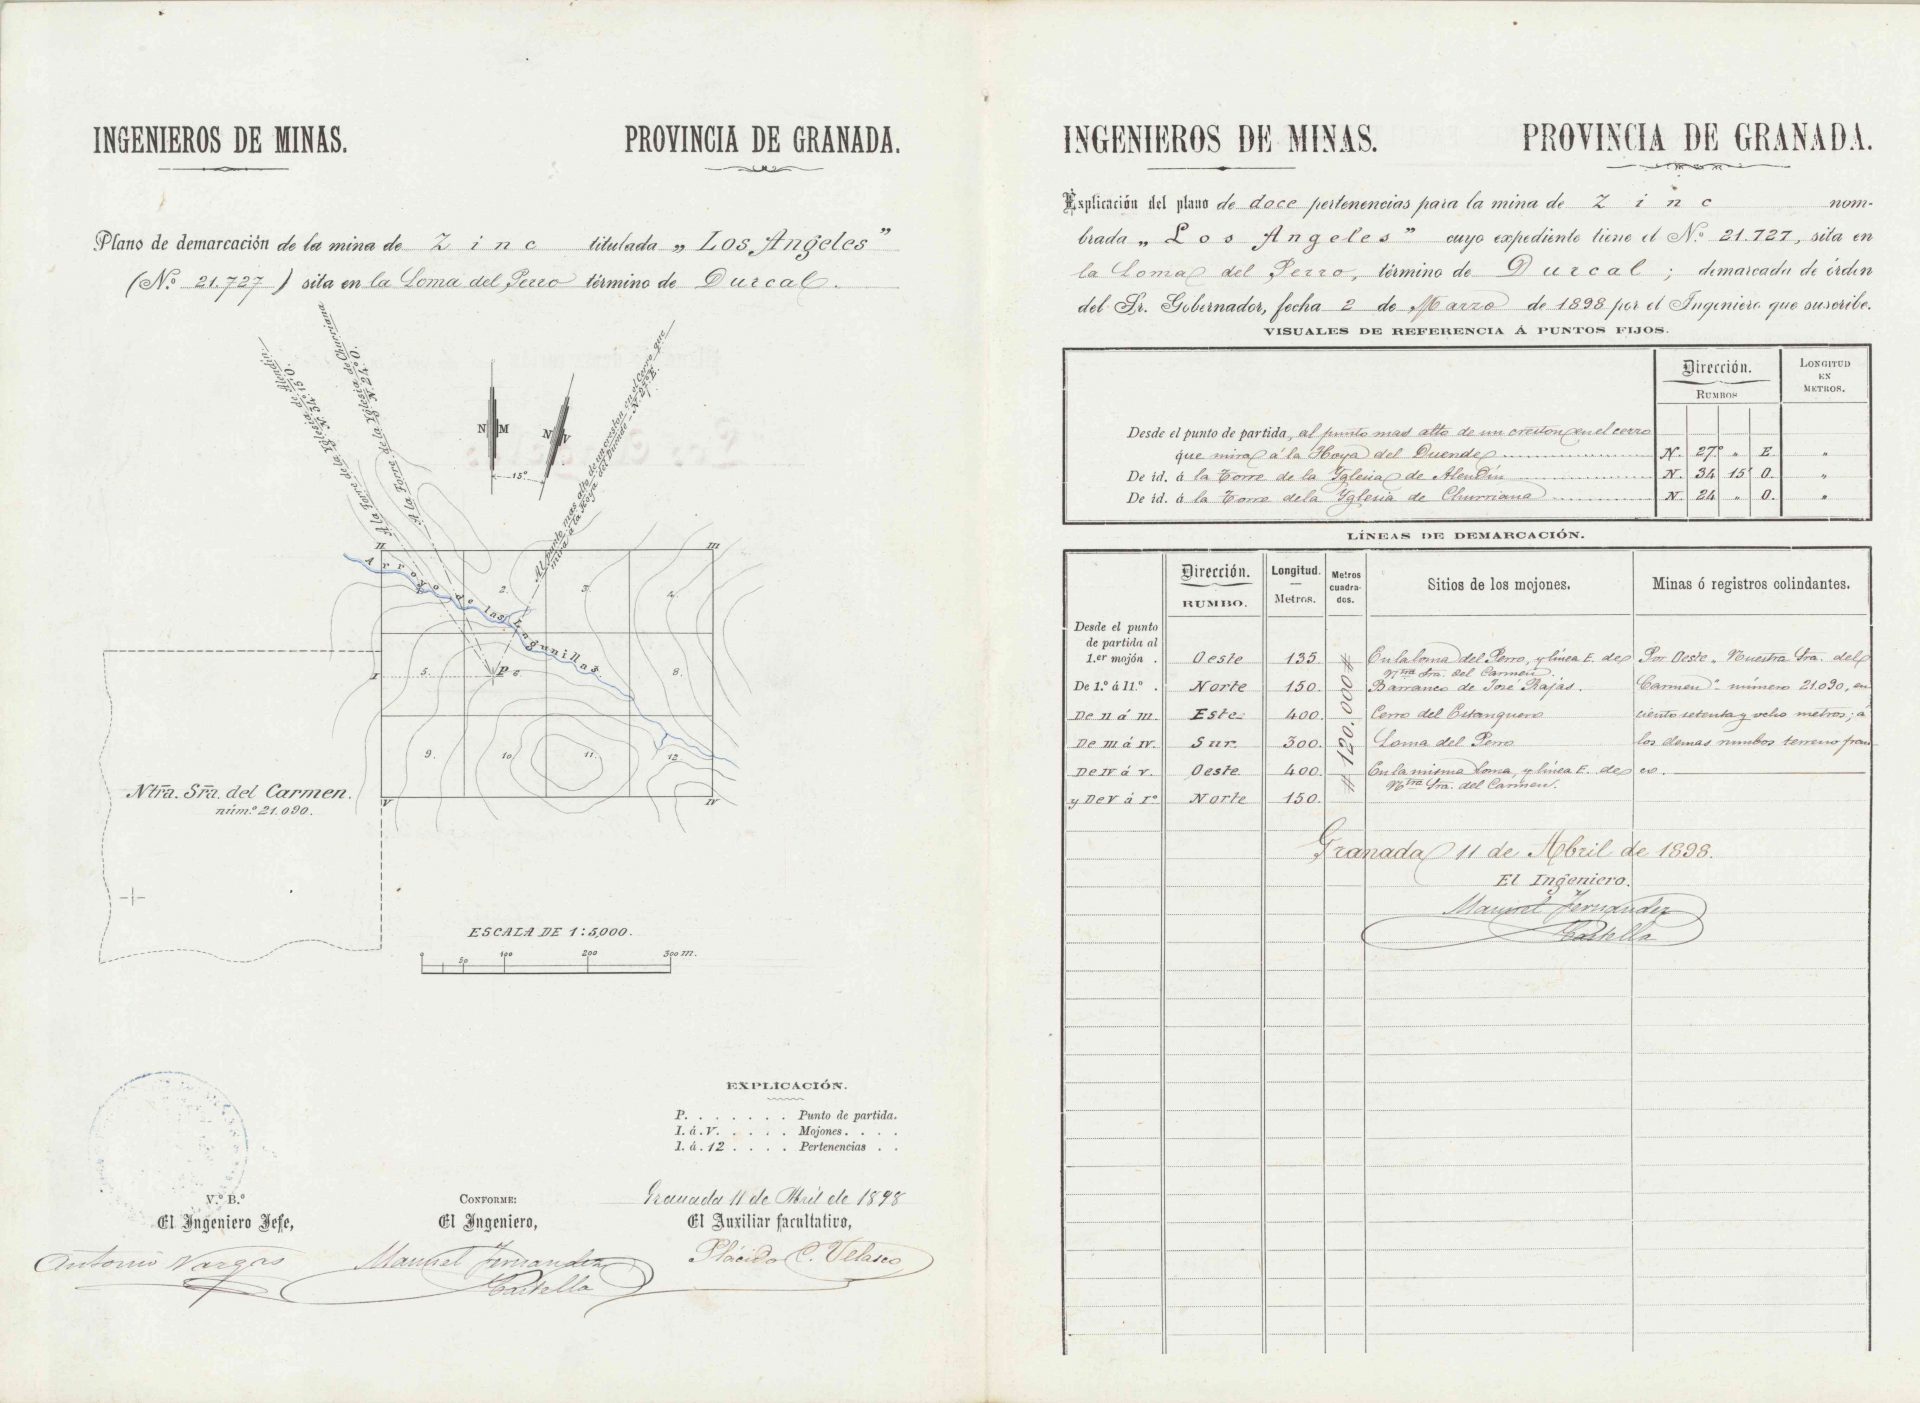 INGENIEROS DE MINAS. PROVINCIA DE GRANADA.
Plano de demarcación de la mina de Zinc titulada „ Los Angeles "
(N.º 21.727) sita en la Loma del Perro término de Durcal.
Á la Torre de la Yglesia de Alendin.
N. 34º 15' O.
Á la Torre de la Yglesia de Churriana
N. 24º O.
Al punto mas alto de un creston en el Cerro que
mira á la Hoya del Duende - N. 27º E.
N M
N V
15º
II III
Arroyo de las Lagunillas
2. 3. 4.
5. P 6. 8.
I
9. 10. 11. 12.
V IV
Ntrã. Srã. del Carmen.
núm.º 21.090.
ESCALA DE 1:5,000.
0 50 100 200 300 m.
EXPLICACIÓN.
P. . . . . . . Punto de partida.
I. á. V. . . . . Mojones. . . .
1. á. 12 . . . . Pertenencias . .
Granada 11 de Abril de 1898
V.º B.º CONFORME:
El Ingeniero Jefe, El Ingeniero, El Auxiliar facultativo,
Antonio Vargas Manuel Fernandez Plácido C. Velasco
Castella
INGENIEROS DE MINAS. PROVINCIA DE GRANADA.
Esplicación del plano de doce pertenencias para la mina de Zinc nom-
brada „ Los Angeles " cuyo expediente tiene el N.º 21.727, sita en
la Loma del Perro, término de Durcal; demarcada de órden
del Sr. Gobernador, fecha 2 de Marzo de 1898 por el Ingeniero que suscribe.
VISUALES DE REFERENCIA Á PUNTOS FIJOS.
Dirección. LONGITUD EN METROS.
RUMBOS
Desde el punto de partida, al punto mas alto de un creston en el cerro
que mira á la Hoya del Duende N. 27º „ E. „
De id. á la Torre de la Yglesia de Alendín N. 34 15' O. „
De id. á la Torre de la Yglesia de Churriana N. 24 „ O. „
LÍNEAS DE DEMARCACIÓN.
Dirección. Longitud. Metros cuadrados. Sitios de los mojones. Minas ó registros colindantes.
RUMBO. Metros.
Desde el punto
de partida al
1.er mojón . Oeste 135 En la loma del Perro, y línea E. de Por Oeste „ Nuestra Sra. del
Ntra Sra. del Carmen.
De 1.º á II.º . Norte 150. Barranco de José Rajas. Carmen" número 21.090, en
De II á III. Este 400. Cerro del Estanquero ciento setenta y ocho metros; á
De III á IV. Sur. 300. Loma del Perro los demas rumbos terreno fran-
De IV á V. Oeste 400. En la misma loma, y línea E. de co.
Ntra Sra. del Carmen.
y De V á Iº Norte 150.
# 120.000 #
Granada 11 de Abril de 1898.
El Ingeniero.
Manuel Fernandez
Castella